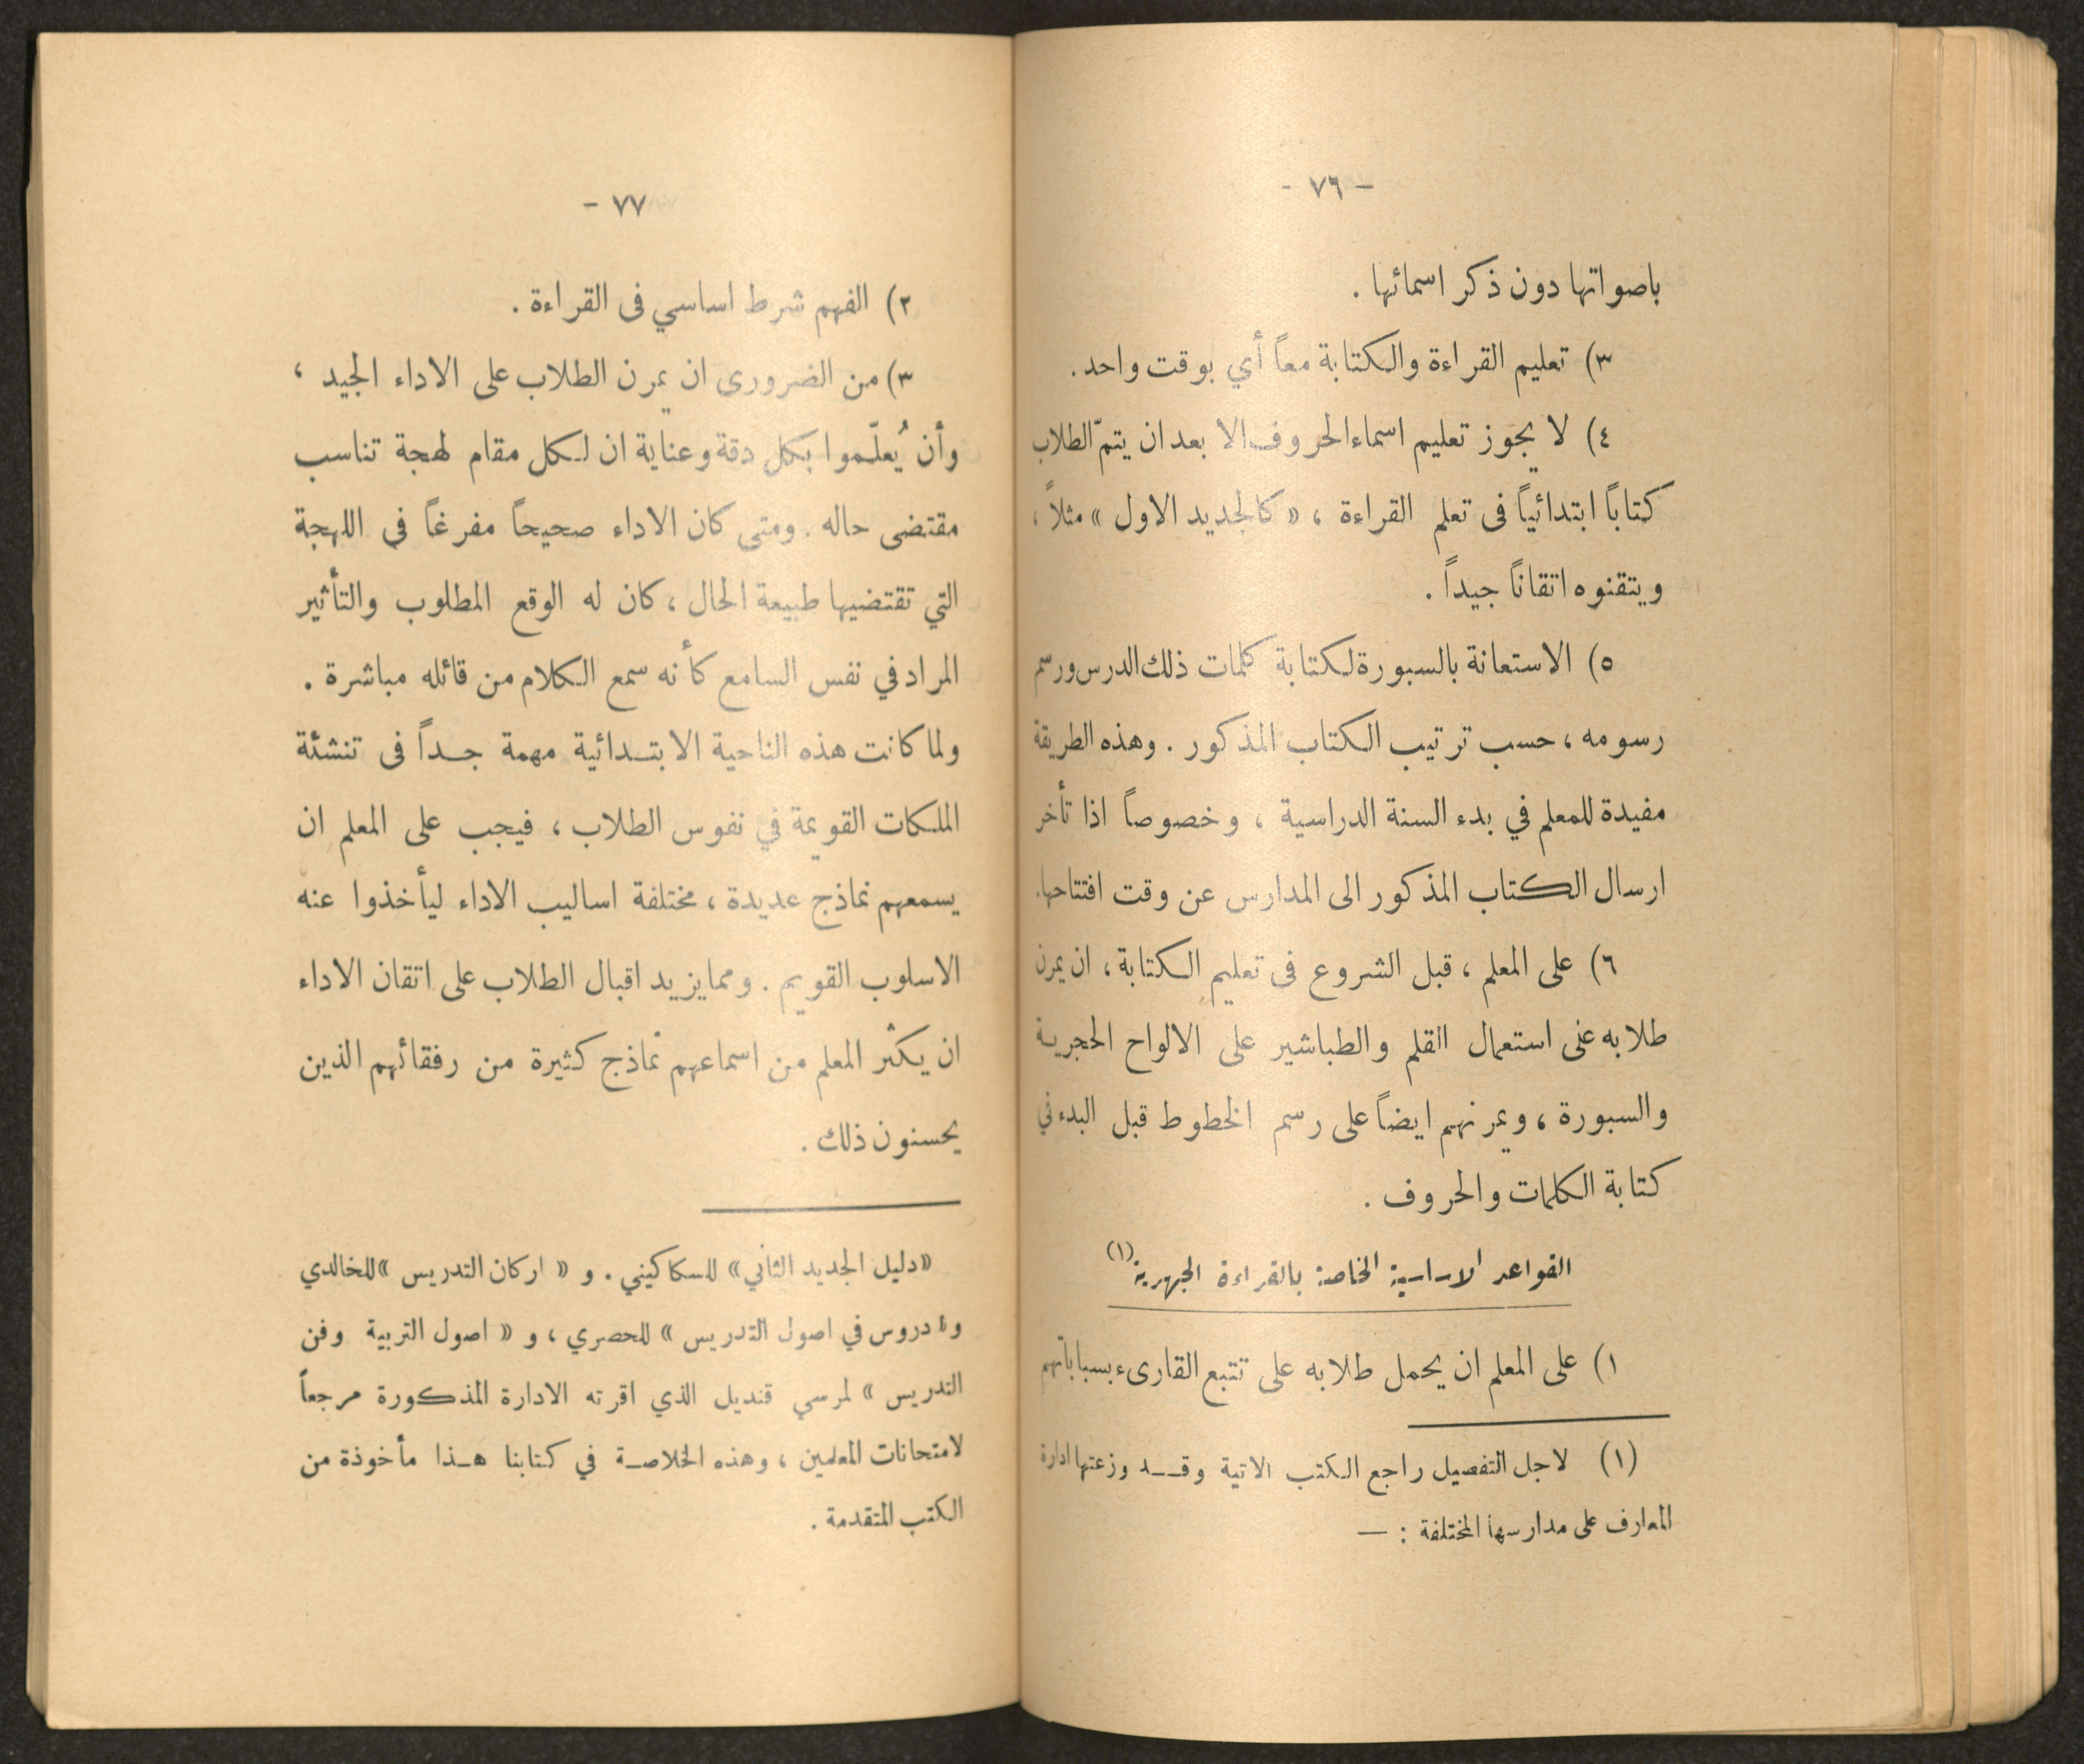 - ٧٦ -
باصواتها دون ذكر اسمائها .
٣) تعليم القراءة والكتابة معاً أي بوقت واحد .
٤) لا يجوز تعليم اسماء الحروف الا بعد ان يتمّ الطلاب
كتاباً ابتدائياً فى تعلم القراءة ، « كالجديد الاول » مثلاً ،
ويتقنوه اتقاناً جيداً .
٥) الاستعانة بالسبورة لكتابة كلمات ذلك الدرس ورسم
رسومه ، حسب ترتيب الكتاب المذكور . وهذه الطريقة
مفيدة للمعلم في بدء السنة الدراسية ، وخصوصاً اذا تأخر
ارسال الكتاب المذكور الى المدارس عن وقت افتتاحها .
٦) على المعلم ، قبل الشروع فى تعليم الكتابة ، ان يمرن
طلابه على استعمال القلم والطباشير على الالواح الحجرية
والسبورة ، ويمرنهم ايضاً على رسم الخطوط قبل البدء في
كتابة الكلمات والحروف .
القواعد الاساسية الخاصة بالقراءة الجهرية (١)
١) على المعلم ان يحمل طلابه على تتبع القارىء بسباباتهم
(١) لاجل التفصيل راجع الكتب الاتية وقد وزعتها ادارة
المعارف على مدارسها المختلفة : —
٧٧ -
٢) الفهم شرط اساسي فى القراءة .
٣) من الضرورى ان يمرن الطلاب على الاداء الجيد ،
وأن يُعلّموا بكل دقة وعناية ان لكل مقام لهجة تناسب
مقتضى حاله . ومتى كان الاداء صحيحاً مفرغاً في اللهجة
التي تقتضيها طبيعة الحال ، كان له الوقع المطلوب والتأثير
المراد في نفس السامع كأنه سمع الكلام من قائله مباشرة .
ولما كانت هذه الناحية الابتدائية مهمة جداً فى تنشئة
الملكات القويمة في نفوس الطلاب ، فيجب على المعلم ان
يسمعهم نماذج عديدة ، مختلفة اساليب الاداء ليأخذوا عنه
الاسلوب القويم . ومما يزيد اقبال الطلاب على اتقان الاداء
ان يكثر المعلم من اسماعهم نماذج كثيرة من رفقائهم الذين
يحسنون ذلك .
« دليل الجديد الثاني » للسكاكيني . و « اركان التدريس » للخالدي
و« دروس في اصول التدريس » للحصري ، و « اصول التربية وفن
التدريس » لمرسي قنديل الذي اقرته الادارة المذكورة مرجعاً
لامتحانات المعلمين ، وهذه الخلاصة في كتابنا هذا مأخوذة من
الكتب المتقدمة .